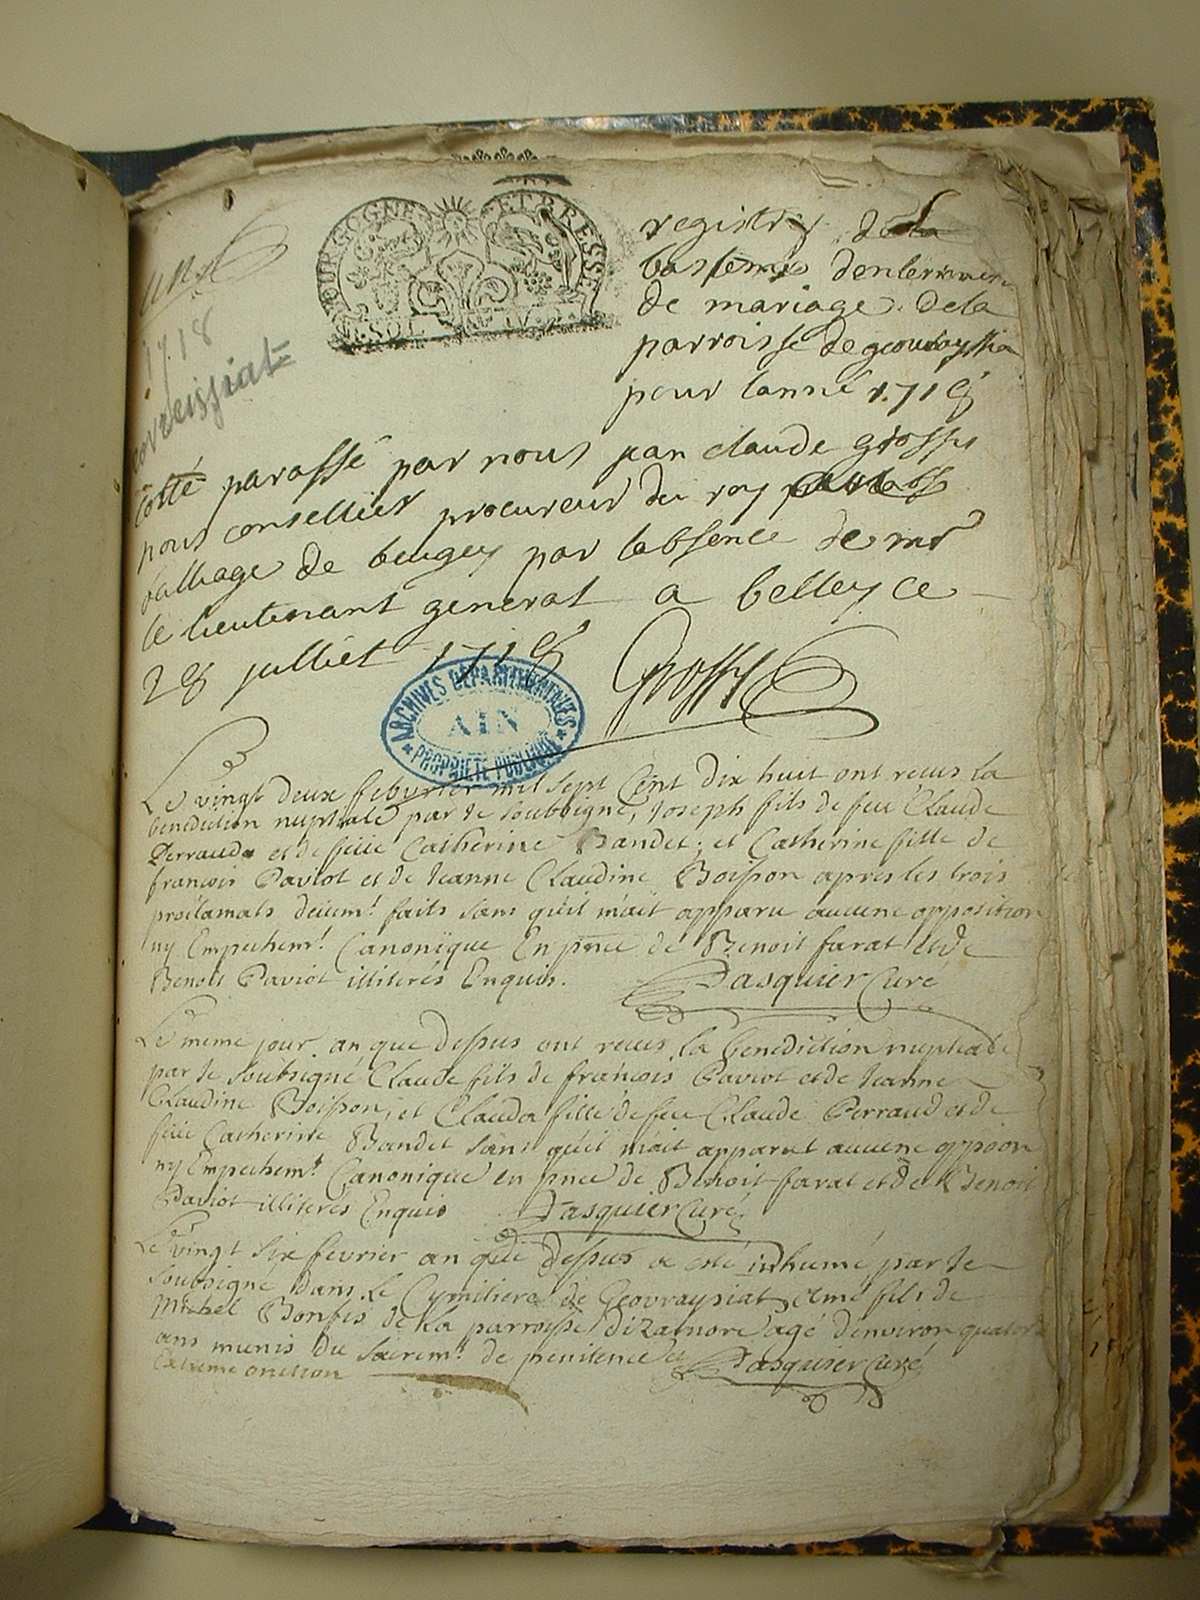 BOURGOGNE ET BRESSE
registre de la
bastemes denterremen
de mariage de la
parroisse de geouraysia
pour lanné 1718
une
1718
covreissiat
cotté paraffé par nous jean claude grossy
nous conseillier procureur du roy
balliage de beugey par labsence de mr
le lieutenant general a belley ce
28 julliet 1718 Grossy
ARCHIVES DEPARTEMENTALES
AIN
PROPRIETE PUBLIQUE
Le vingt deux febvrier mil sept Cent dix huit ont receus la
benediction nuptiale par le soubsigné, Joseph fils de feu Claude
Perraud et de feüe Catherine Bandet; et Catherine fille de
françois Paviot et de Jeanne Claudine Boisson apres les trois
proclamats deüemt. faits sans qu'il m'ait apparu aucune opposition
ny Empechemt. Canonique En pnce de Benoit farat et de
Benoit Paviot illiterés Enquis. Pasquier Curé
Le meme jour an que dessus ont receus la benediction nuptiale
par le soubsigné Claude fils de françois Paviot et de Jeanne
Claudine Boisson, et Clauda fille de feu Claude Perraud et de
feüe Catherine Bandet sans qu'il m'ait apparut aucune opposion
ny Empechemt. Canonique en pnce de Benoit farat et de Benoit
Paviot illiterés Enquis Pasquier Curé
Le vingt six fevrier an que dessus a eté inhumé par le
soubsigné dans le Cymitiere de Geovraysiat aimé fils de
Michel Bonfis de la parroisse dizarnore agé denviron quatorze
ans munis du sacremt. de penitence et Pasquier Curé
Extreme onction